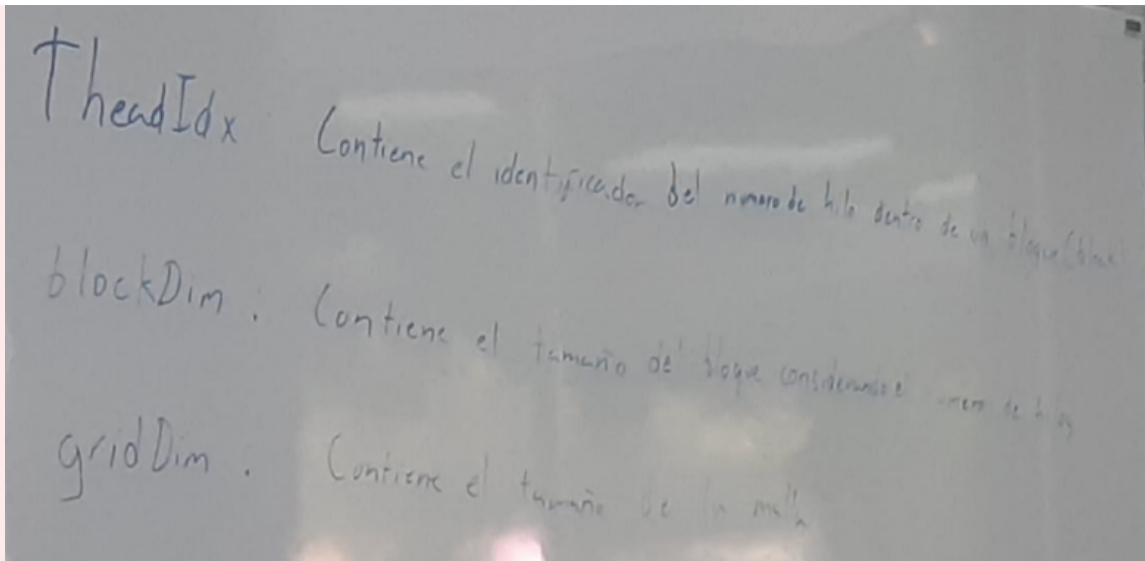 TheadIdx Contiene el identificador del numero de hilo dentro de un bloque (block)
blockDim : Contiene el tamaño del bloque considerando el numero de hilos
gridDim . Contiene el tamaño de la malla